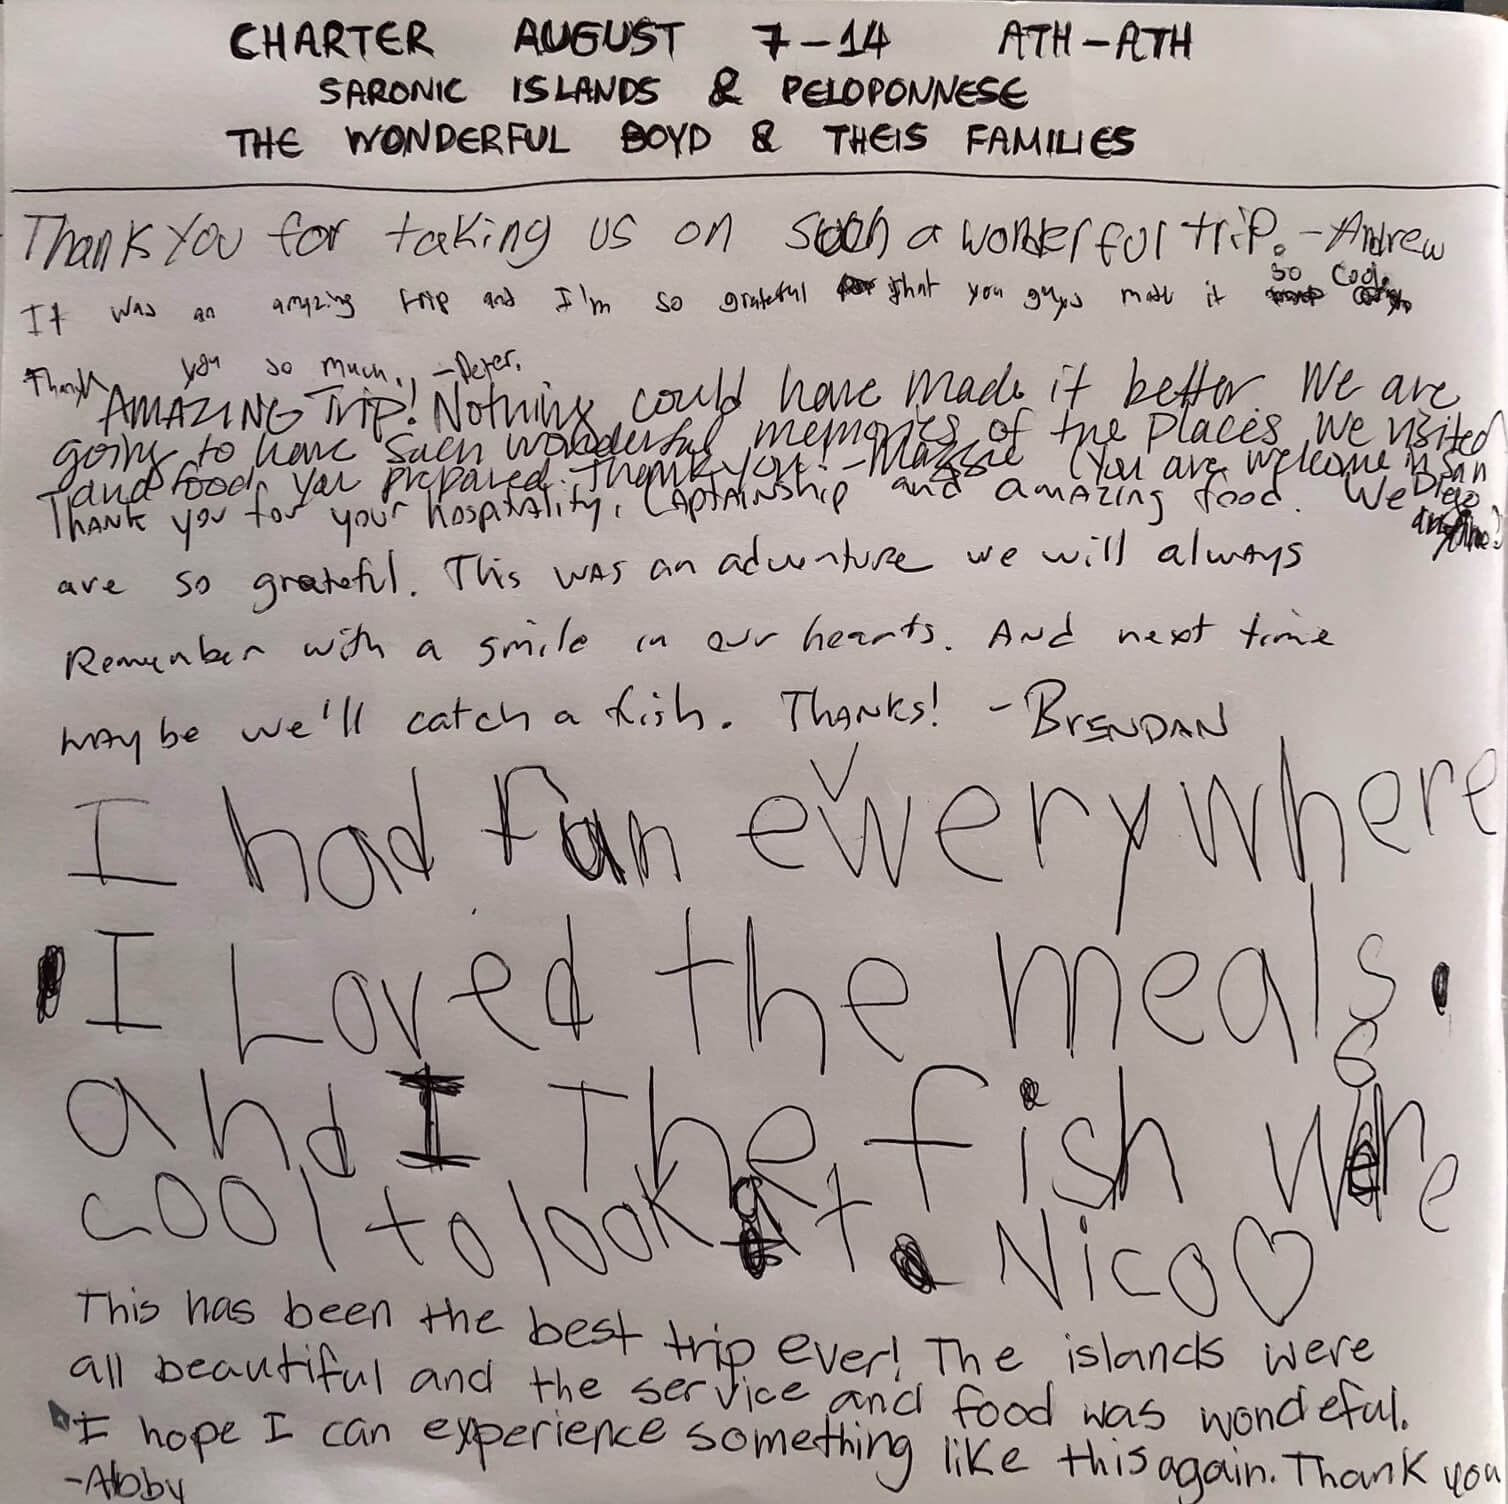 CHARTER AUGUST 7-14 ATH-ATH
SARONIC ISLANDS & PELOPONNESE
THE WONDERFUL BOYD & THEIS FAMILIES
Thank You for taking us on such a wonderful trip. -Andrew
It was an amazing trip and I'm so grateful that you guys made it so cool.
Thank you so much. -Peter.
AMAZING Trip! Nothing could have made it better. We are
going to have such wonderful memories of the places we visited
and food you prepared. Thank you! - (You are welcome in San Diego anytime!)
Thank you for your hospitality, Captainship and amazing food. We
are so grateful. This was an adventure we will always
Remember with a smile in our hearts. And next time
maybe we'll catch a fish. Thanks! - BRENDAN
I had fun everywhere
I Loved the meals.
and The fish were
cool to look at. Nico♡
This has been the best trip ever! The islands were
all beautiful and the service and food was wondeful.
I hope I can experience something like this again. Thank you
-Abby